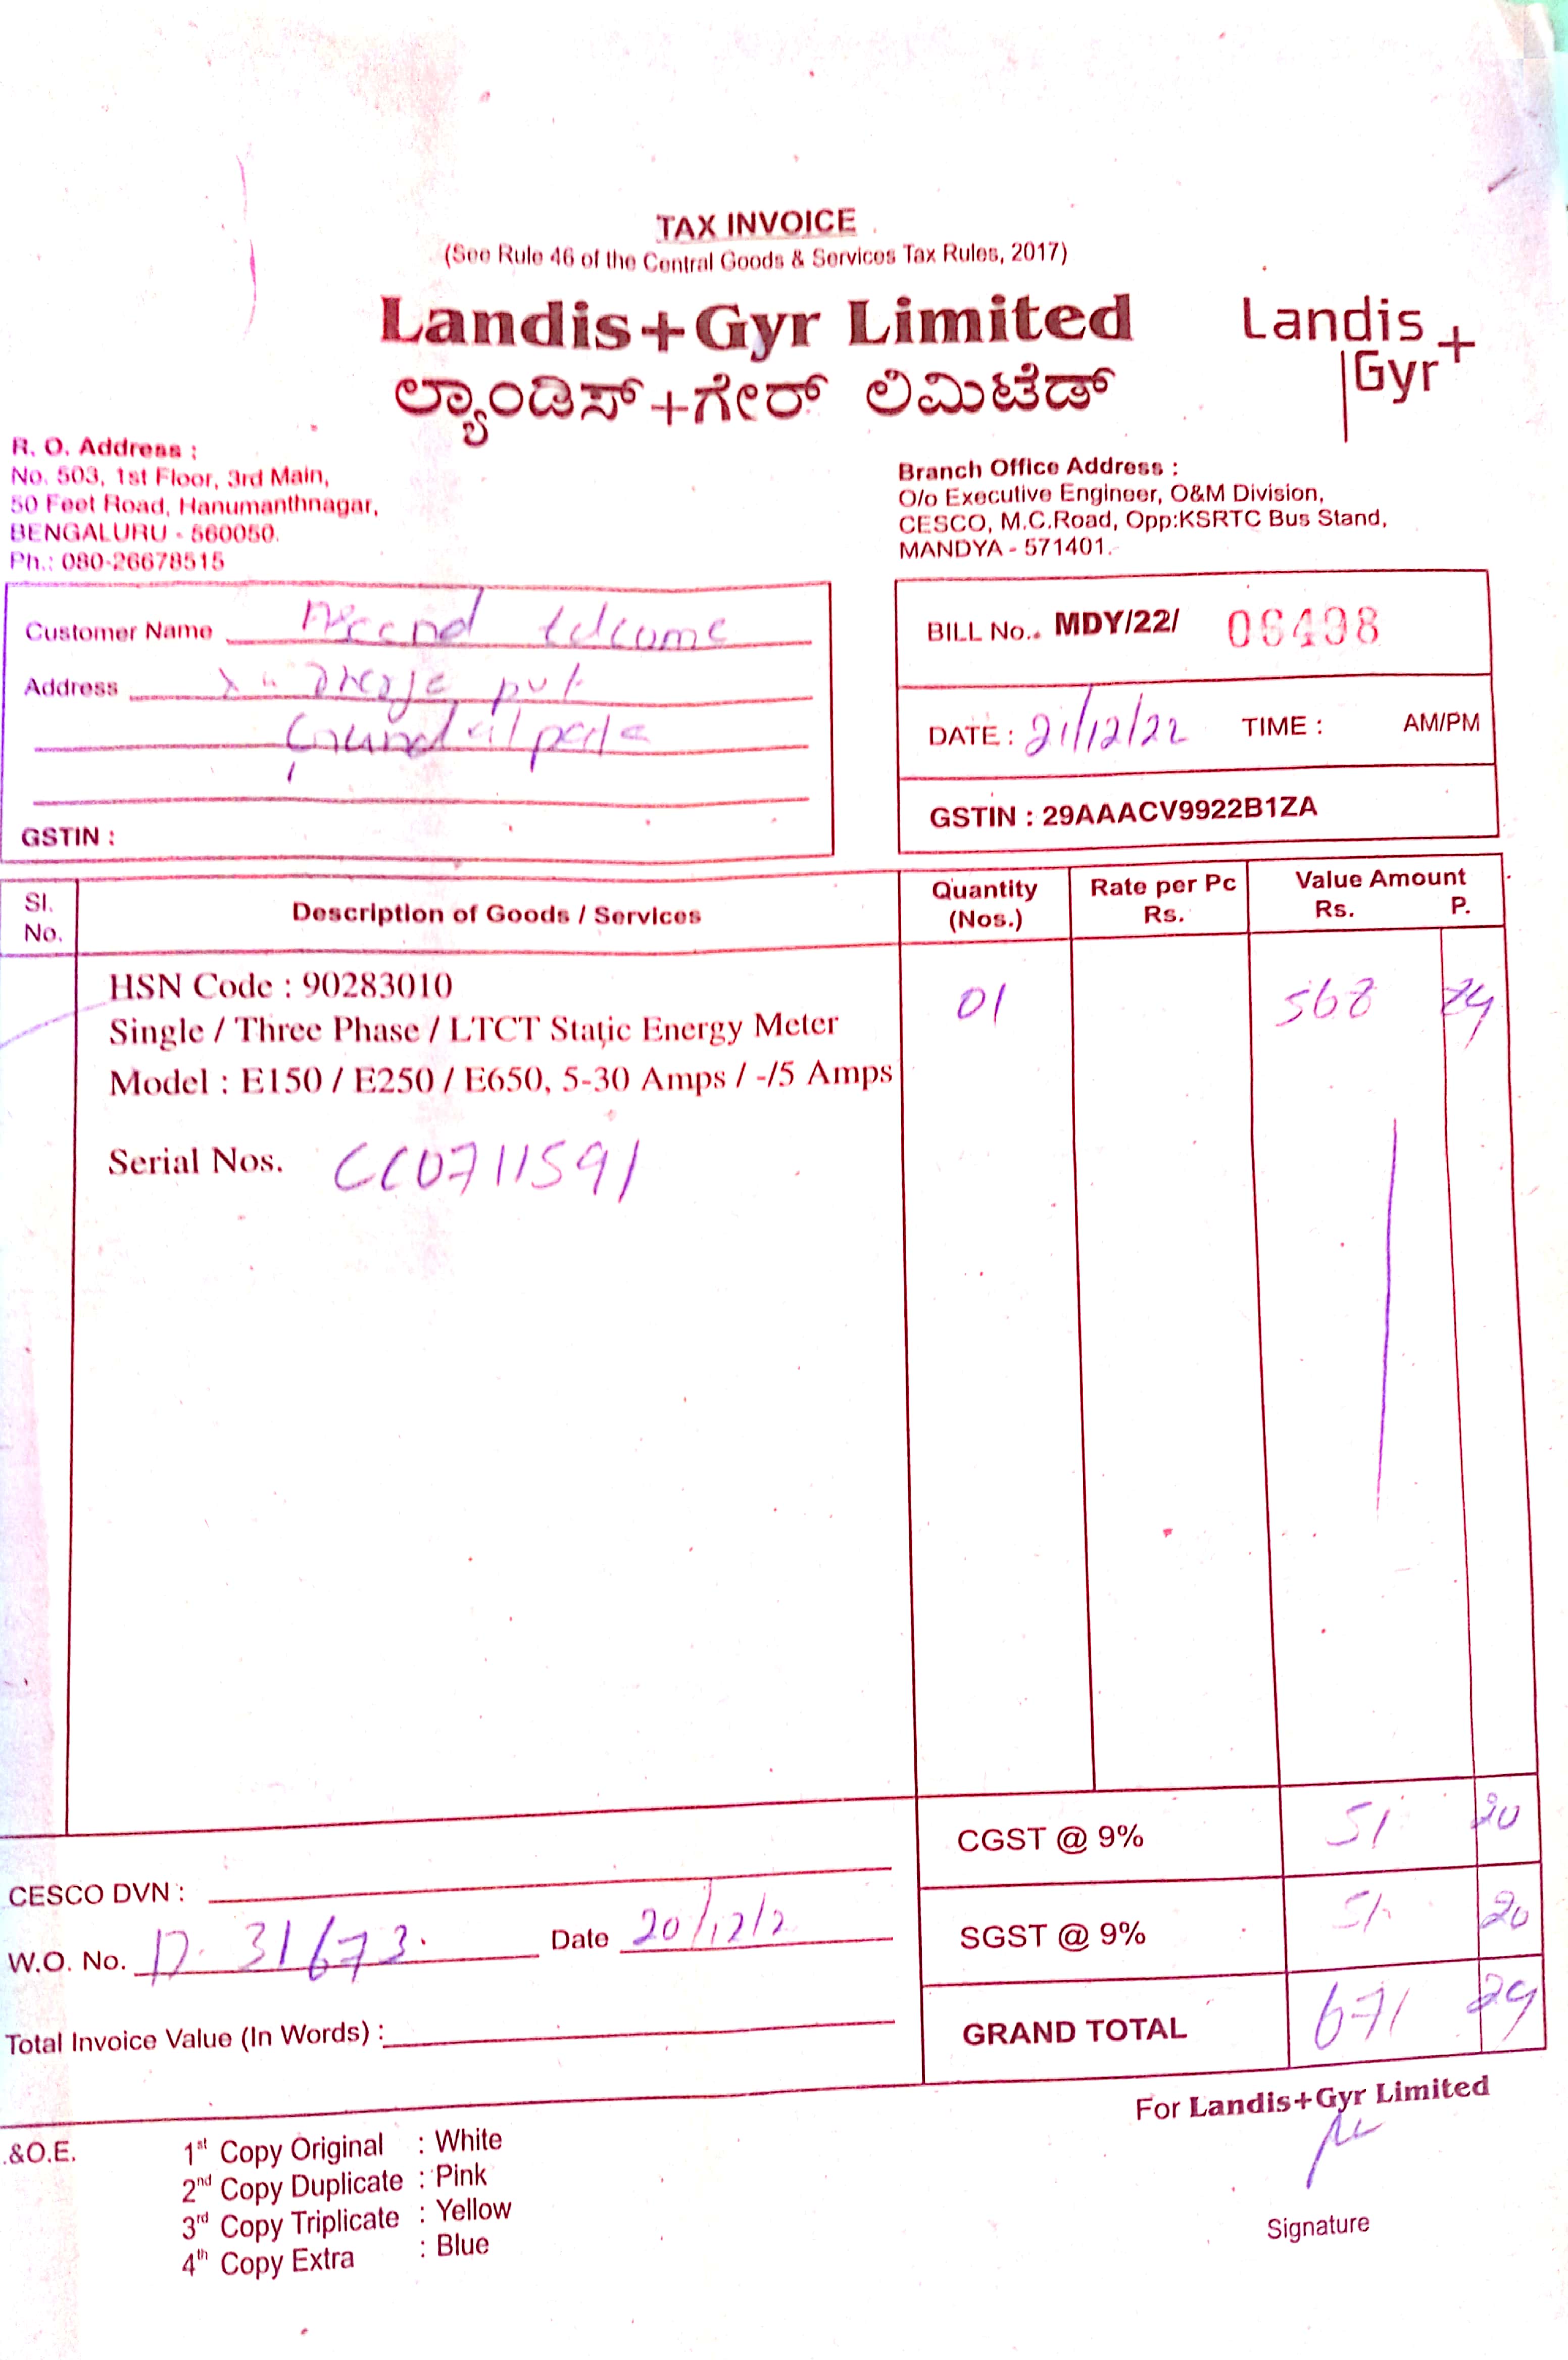 TAX INVOICE
(See Rule 46 of the Central Goods & Services Tax Rules, 2017)
Landis+Gyr Limited
ಲ್ಯಾಂಡಿಸ್+ಗೇರ್ ಲಿಮಿಟೆಡ್
Landis
Gyr+
R. O. Address :
No. 503, 1st Floor, 3rd Main,
50 Feet Road, Hanumanthnagar,
BENGALURU - 560050.
Ph.: 080-26678515
Branch Office Address :
O/o Executive Engineer, O&M Division,
CESCO, M.C.Road, Opp:KSRTC Bus Stand,
MANDYA - 571401.
Customer Name
Address
GSTIN :
BILL No.. MDY/22/ 06498
DATE : 21/12/22 TIME : AM/PM
GSTIN : 29AAACV9922B1ZA
Sl. No. Description of Goods / Services Quantity (Nos.) Rate per Pc Rs. Value Amount Rs. P.
HSN Code : 90283010 01 568
Single / Three Phase / LTCT Static Energy Meter
Model : E150 / E250 / E650, 5-30 Amps / -/5 Amps
Serial Nos. CC0711591
CGST @ 9% 51 20
CESCO DVN :
SGST @ 9% 51 20
W.O. No. 31673. Date 20/12/2
GRAND TOTAL 671
Total Invoice Value (In Words) :
For Landis+Gyr Limited
.&O.E.
1st Copy Original : White
2nd Copy Duplicate : Pink
3rd Copy Triplicate : Yellow
4th Copy Extra : Blue
Signature